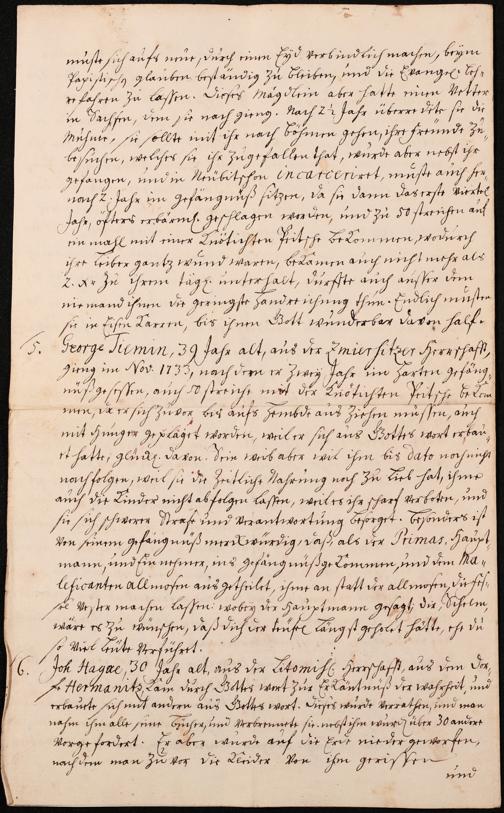 muste sich aufs neue, durch einen Eyd verbindlich machen, beym
Papistisch glauben beständig zu bleiben, und die Evangel. Leh-
re fahren zu lassen. Dieses Mägdlein aber hatte einen Vetter
in Sachsen, dem sie nach gieng. Nach 2½ Jahr überredete sie die
Muhme, sie sollte mit ihr nach Böhmen gehen, ihre freunde zu
besuchen, welches sie ihr zu gefallen that, wurde aber nebst ihr
gefangen, und in Neübitschon incarceriret, muste auch her-
nach 2. Jahr im gefängnüß sitzen, da sie dann das erste viertel
Jahr, öfters erbärml. geschlagen worden, und zu 50 streichen auf
ein mahl mit einer Knötichten Peitsche bekommen, wodurch
ihre leiber gantz wund waren, bekamen auch nicht mehr als
2. xr zu ihrem tägl. unterhalt, durffte auch ausser dem
niemand ihnen die geringste handreichung thun. Endlich musten
sie in Karren, bis ihnen Gott wunderbar davon half.
5. George Tumin, 39 Jahr alt, aus der Herrschafft,
gieng im Nov. 1733, nachdem er zwey Jahr im harten gefäng
nüß gesessen, auch 50 streiche mit der Knötichten Peitsche bekom
men, da er sich zuvor bis aufs hembde aus ziehen müssen, auch
mit hunger geplaget worden, weil er sich aus Gottes wort erbau-
et hatte, glückl. davon. Sein weib aber wil ihm bis dato noch nicht
nachfolgen, weil sie die zeitliche Nahrung noch zu lieb hat, ihme
auch die Kinder nicht abfolgen lassen, weil es ihr scharf verboten, und
sie sich schwerer Straffe und verantwortung besorget. besonders ist
von seinem gefängnüß merckwürdig, daß, als der Primas, Haupt-
mann, und Einnehmer, ins gefängnüß gekommen, und dem Ma-
leficanten allmosen ausgetheilet, ihme an statt der allmosen, die feß-
sel vester machen lassen wobey der Hauptmann gesagt, die Schelm,
wäre es zu wünschen, daß dich der teüfel längst geholet hätte, ehe du
so viel leüte verführet.
6. Joh Hagae, 30 Jahr alt, aus der Litomischl. Herrschafft, aus dem Dor-
fe Hermanitz, kam durch Gottes wort zur Erkäntnüß der wahrheit, und
erbauete sich mit andern aus Gottes wort. dieses wurde verrathen, und man
nahm ihm alle seine bücher, und verbrennete sie. nebst ihm wurden über 30 andere
vorgefordert. Er aber wurde auf die Erde nieder geworfen,
nachdem man zuvor die Kleider von ihm gerissen
und